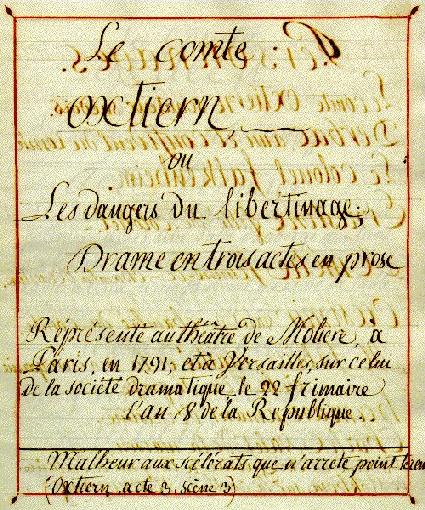 Le comte
oxtiern
ou
Les dangers du libertinage;
Drame en trois actes en prose
Réprésenté au théâtre de Moliere, à
Paris, en 1791, et à Versailles, sur celui
de la société dramatique le 22 frimaire
l'an 8 de la République
Malheur aux scélérats que n'arrete point
(Oxtiern, acte 3, scène 3)